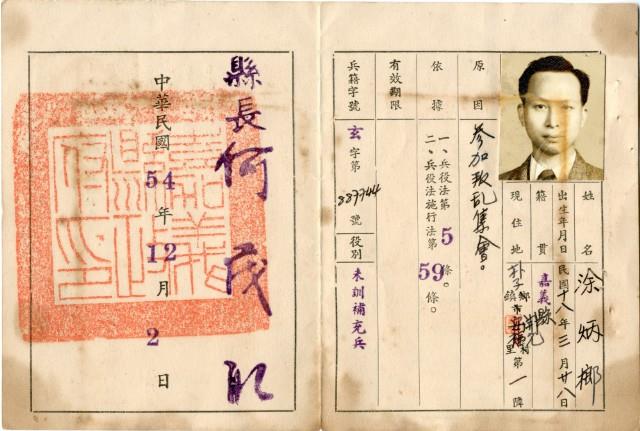 姓名 涂炳榔
出生年月日 民國十八年三月廿八日
籍貫 嘉義縣
現住地 朴子鎮鄉市 里村第一鄰
原因 參加 亂集會。
依據 一、兵役法第5條。
二、兵役法施行法第59條。
有效期限
兵籍字號 玄字第887744號 役別 未訓補充兵
縣長何茂取
中華民國54年12月2日